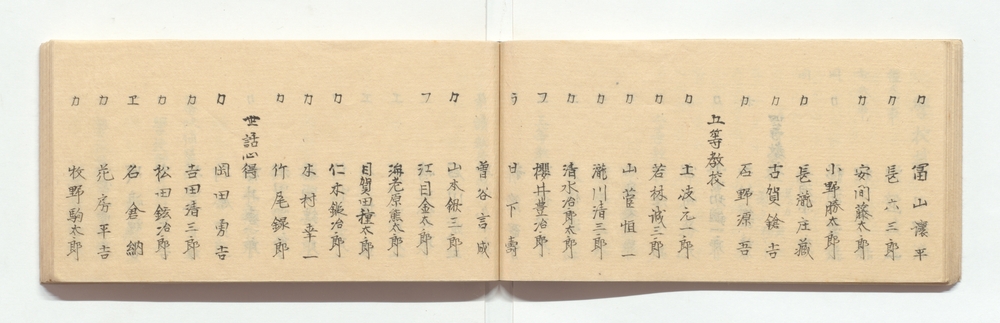 カ 冨山濂平
カ 長六三郎
カ 安間藤太郎
小野勝太郎
カ 長瀧庄蔵
カ 古賀鎗吉
カ 石野源吾
五等教授
カ 土波元一郎
カ 若林誠三郎
カ 山菅恒一
カ 瀧川清三郎
カ 清水治郎太郎
フ 櫻井豊治郎
ラ 日下壽
曽谷言成
カ 山本鍬三郎
フ 江目金太郎
海老原熏太郎
目賀田種太郎
カ 仁木鎚治郎
カ 木村幸一
カ 竹尾録郎
世話心得
カ 岡田勇吉
カ 吉田清三郎
カ 松田鉉治郎
ヱ 名倉納
カ 花房平吉
カ 牧野駒太郎